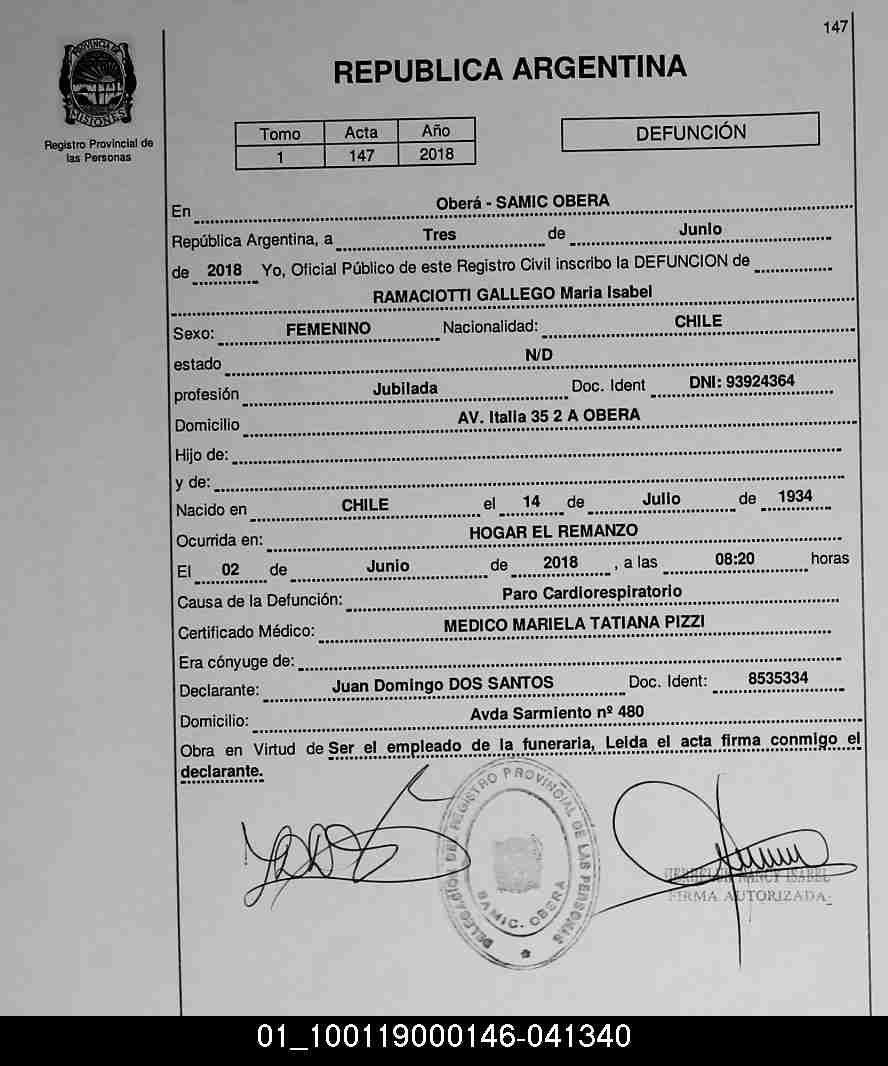 147
PROVINCIA DE
MISIONES
Registro Provincial de
las Personas
REPUBLICA ARGENTINA
Tomo Acta Año
1 147 2018
DEFUNCIÓN
En Oberá - SAMIC OBERA
República Argentina, a Tres de Junio
de 2018 Yo, Oficial Público de este Registro Civil inscribo la DEFUNCION de
RAMACIOTTI GALLEGO Maria Isabel
Sexo: FEMENINO Nacionalidad: CHILE
estado N/D
profesión Jubilada Doc. Ident DNI: 93924364
Domicilio AV. Italia 35 2 A OBERA
Hijo de:
y de:
Nacido en CHILE el 14 de Julio de 1934
Ocurrida en: HOGAR EL REMANZO
El 02 de Junio de 2018 , a las 08:20 horas
Causa de la Defunción: Paro Cardiorespiratorio
Certificado Médico: MEDICO MARIELA TATIANA PIZZI
Era cónyuge de:
Declarante: Juan Domingo DOS SANTOS Doc. Ident: 8535334
Domicilio: Avda Sarmiento nº 480
Obra en Virtud de Ser el empleado de la funeraria, Leida el acta firma conmigo el
declarante.
DELEGACION DEL REGISTRO PROVINCIAL DE LAS PERSONAS
SAMIC. OBERA
NANCY ISABEL
FIRMA AUTORIZADA
01_100119000146-041340